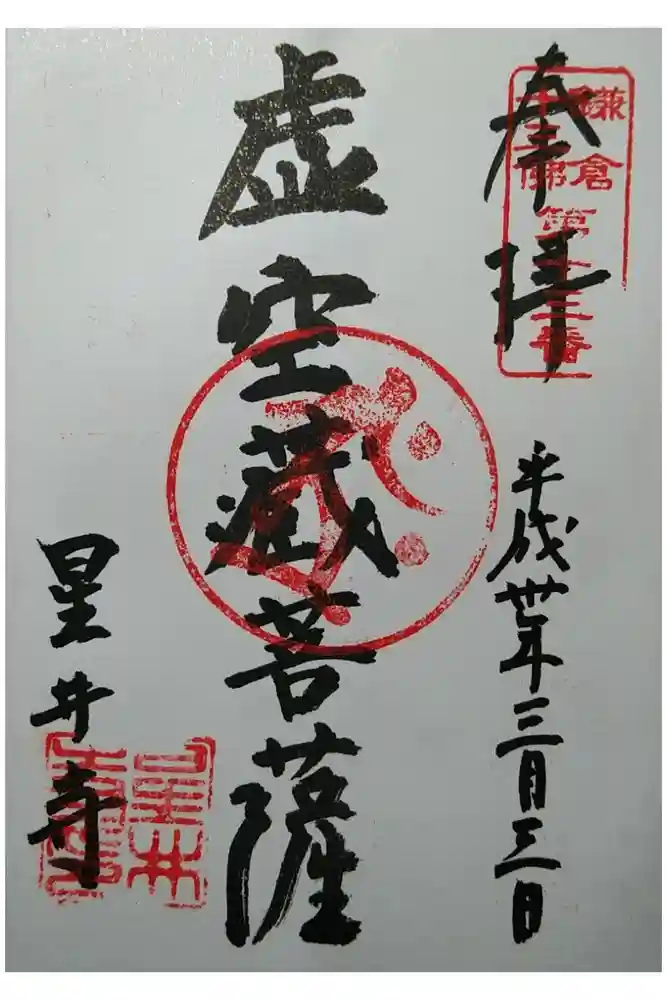 奉拝
鎌倉
十三佛
第十三番
平成丗年三月三日
虚空藏菩薩
星井寺
星井